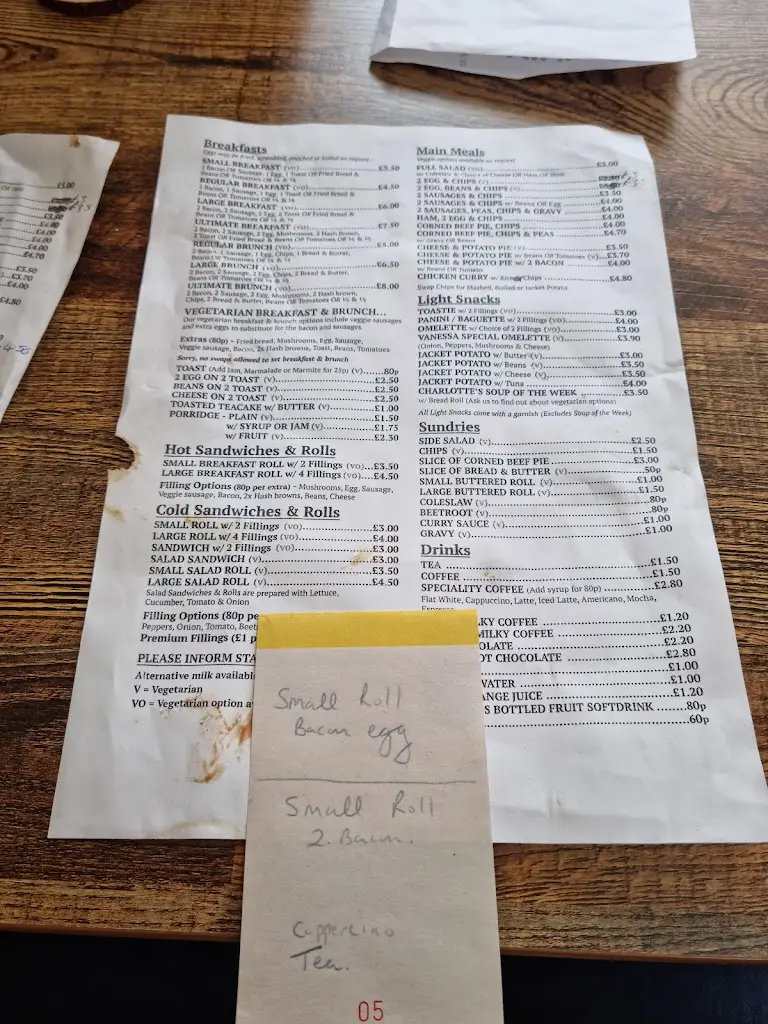 Breakfasts
Eggs may be fried, scrambled, poached or boiled on request
SMALL BREAKFAST (VO) £3.50
1 Bacon, 1 Sausage, 1 Egg, 1 Toast OR Fried Bread &
Beans OR Tomatoes OR ½ & ½
REGULAR BREAKFAST (VO) £4.50
Beans OR Tomatoes OR ½ & ½
LARGE BREAKFAST (VO) £6.00
2 Bacon, 2 Sausage, 2 Egg, 2 Toast OR Fried Bread &
Beans OR Tomatoes OR ½ & ½
ULTIMATE BREAKFAST (VO) £7.50
2 Bacon, 2 Sausage, 2 Egg, Mushrooms, 2 Hash brown,
2 Toast OR Fried Bread & Beans OR Tomatoes OR ½ & ½
REGULAR BRUNCH (VO) £5.00
2 Bacon, 1 Sausage, 1 Egg, Chips, 1 Bread & Butter,
Beans OR Tomatoes OR ½ & ½
LARGE BRUNCH (VO) £6.50
2 Bacon, 2 Sausage, 2 Egg, Chips, 2 Bread & Butter,
Beans OR Tomatoes OR ½ & ½
ULTIMATE BRUNCH (VO) £8.00
2 Bacon, 2 Sausage, 2 Egg, Mushrooms, 2 Hash brown,
Chips, 2 Bread & Butter, Beans OR Tomatoes OR ½ & ½
VEGETARIAN BREAKFAST & BRUNCH...
Our vegetarian breakfast & brunch options include veggie sausages
and extra eggs to substitute for the bacon and sausages.
Extras (80p) - Fried bread, Mushrooms, Egg, Sausage,
Veggie sausage, Bacon, 2x Hash browns, Toast, Beans, Tomatoes
Sorry, no swaps allowed to set breakfast & brunch
TOAST (Add Jam, Marmalade or Marmite for 25p) (V) 80p
2 EGG ON 2 TOAST (V) £2.50
BEANS ON 2 TOAST (V) £2.50
CHEESE ON 2 TOAST (V) £2.50
TOASTED TEACAKE w/ BUTTER (V) £1.00
PORRIDGE - PLAIN (V) £1.50
w/ SYRUP OR JAM (V) £1.75
w/ FRUIT (V) £2.50
Hot Sandwiches & Rolls
SMALL BREAKFAST ROLL w/ 2 Fillings (VO) £3.50
LARGE BREAKFAST ROLL w/ 4 Fillings (VO) £4.50
Filling Options (80p per extra) - Mushrooms, Egg, Sausage,
Veggie sausage, Bacon, 2x Hash browns, Beans, Cheese
Cold Sandwiches & Rolls
SMALL ROLL w/ 2 Fillings (VO) £3.00
LARGE ROLL w/ 4 Fillings (VO) £4.00
SANDWICH w/ 2 Fillings (VO) £3.00
SALAD SANDWICH (V) £3.00
SMALL SALAD ROLL (V) £3.50
LARGE SALAD ROLL (V) £4.50
Salad Sandwiches & Rolls are prepared with Lettuce,
Cucumber, Tomato & Onion
Filling Options (80p pe
Peppers, Onion, Tomato, Beet
Premium Fillings (£1 p
PLEASE INFORM STA
Alternative milk availabl
V = Vegetarian
VO = Vegetarian option a
Main Meals
Veggie options available on request
FULL SALAD (VO) £5.00
2 EGG & CHIPS (V)
2 EGG, BEANS & CHIPS (V)
2 SAUSAGE & CHIPS £3.50
2 SAUSAGES & CHIPS w/ Beans OR Egg £4.00
2 SAUSAGES, PEAS, CHIPS & GRAVY £4.00
HAM, 2 EGG & CHIPS £4.00
CORNED BEEF PIE, CHIPS £4.00
CORNED BEEF PIE, CHIPS & PEAS £4.70
w/ Gravy OR Beans
CHEESE & POTATO PIE (V) £3.50
CHEESE & POTATO PIE w/ Beans OR Tomatoes (V) £3.70
CHEESE & POTATO PIE w/ 2 BACON £4.00
w/ Beans OR Tomato
CHICKEN CURRY w/ Rice Chips £4.80
Swap Chips for Mashed, Boiled or Jacket Potato
Light Snacks
TOASTIE w/ 2 Fillings (VO) £3.00
PANINI / BAGUETTE w/ 2 Fillings (VO) £4.00
OMELETTE w/ Choice of 2 Fillings (VO) £3.00
VANESSA SPECIAL OMELETTE (V) £3.90
(Onion, Peppers, Mushrooms & Cheese)
JACKET POTATO w/ Butter (V) £3.00
JACKET POTATO w/ Beans (V) £3.50
JACKET POTATO w/ Cheese (V) £3.50
JACKET POTATO w/ Tuna £4.00
CHARLOTTE'S SOUP OF THE WEEK £3.50
w/ Bread Roll (Ask us to find out about vegetarian options)
All Light Snacks come with a garnish (Excludes Soup of the Week)
Sundries
SIDE SALAD (V) £2.50
CHIPS (V) £1.50
SLICE OF CORNED BEEF PIE £3.00
SLICE OF BREAD & BUTTER (V) 50p
SMALL BUTTERED ROLL (V) £1.00
LARGE BUTTERED ROLL (V) £1.50
COLESLAW (V) 80p
BEETROOT (V) 80p
CURRY SAUCE (V) £1.00
GRAVY (V) £1.00
Drinks
TEA £1.50
COFFEE £1.50
SPECIALITY COFFEE (Add syrup for 80p) £2.80
Flat White, Cappuccino, Latte, Iced Latte, Americano, Mocha,
LKY COFFEE £1.20
MILKY COFFEE £2.20
OLATE £2.20
OT CHOCOLATE £2.80
£1.00
WATER £1.00
ANGE JUICE £1.20
S BOTTLED FRUIT SOFTDRINK 80p
60p
Small Roll
Bacon egg
Small Roll
2. Bacon.
Cuppercino
Tea.
05
£5.00
£4.00
£4.00
£4.00
£4.70
£3.50
£3.70
£4.00
£4.80